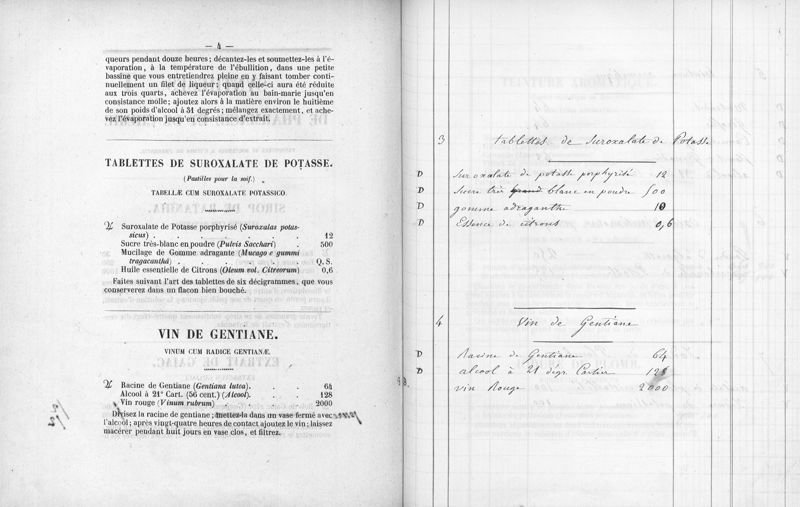 — 4 —
queurs pendant douze heures; décantez-les et soumettez-les à l'é-
vaporation, à la température de l'ébullition, dans une petite
bassine que vous entretiendrez pleine en y faisant tomber conti-
nuellement un filet de liqueur; quand celle-ci aura été réduite
aux trois quarts, achevez l'évaporation au bain-marie jusqu'en
consistance molle; ajoutez alors à la matière environ le huitième
de son poids d'alcool à 31 degrés; mélangez exactement, et ache-
vez l'évaporation jusqu'en consistance d'extrait.
TABLETTES DE SUROXALATE DE POTASSE.
(Pastilles pour la soif.)
TABELLÆ CUM SUROXALATE POTASSICO.
Suroxalate de Potasse porphyrisé (Suroxalas potas-
sicus) . . . . . . . 12
Sucre très-blanc en poudre (Pulvis Sacchari) . 500
Mucilage de Gomme adragante (Mucago e gummi
tragacantha) . . . . . . Q. S.
Huile essentielle de Citrons (Oleum vol. Citreorum) 0,6
Faites suivant l'art des tablettes de six décigrammes, que vous
conserverez dans un flacon bien bouché.
VIN DE GENTIANE.
VINUM CUM RADICE GENTIANÆ.
Racine de Gentiane (Gentiana lutea) . . . 64
Alcool à 21° Cart. (56 cent.) (Alcool) . . . 128
Vin rouge (Vinum rubrum) . . . . 2000
Divisez la racine de gentiane; mettez-la dans un vase fermé avec
l'alcool; après vingt-quatre heures de contact ajoutez le vin; laissez
macérer pendant huit jours en vase clos, et filtrez.
3 tablettes de Suroxalate de Potasse
D Suroxalate de potasse porphyrisé 12
D Sucre très grand blanc en poudre 500
D gomme adragante 10
D Essence de citrons 0,6
4 Vin de Gentiane
D Racine de Gentiane 64
D alcool à 21 degr. Cartier 128
vin Rouge 2000